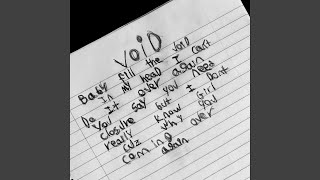 VOID
Baby fill the void
In my head I cant
Do It over again
you say you need
closure but I Dont
really know Girl
cuz why you
coming over
again